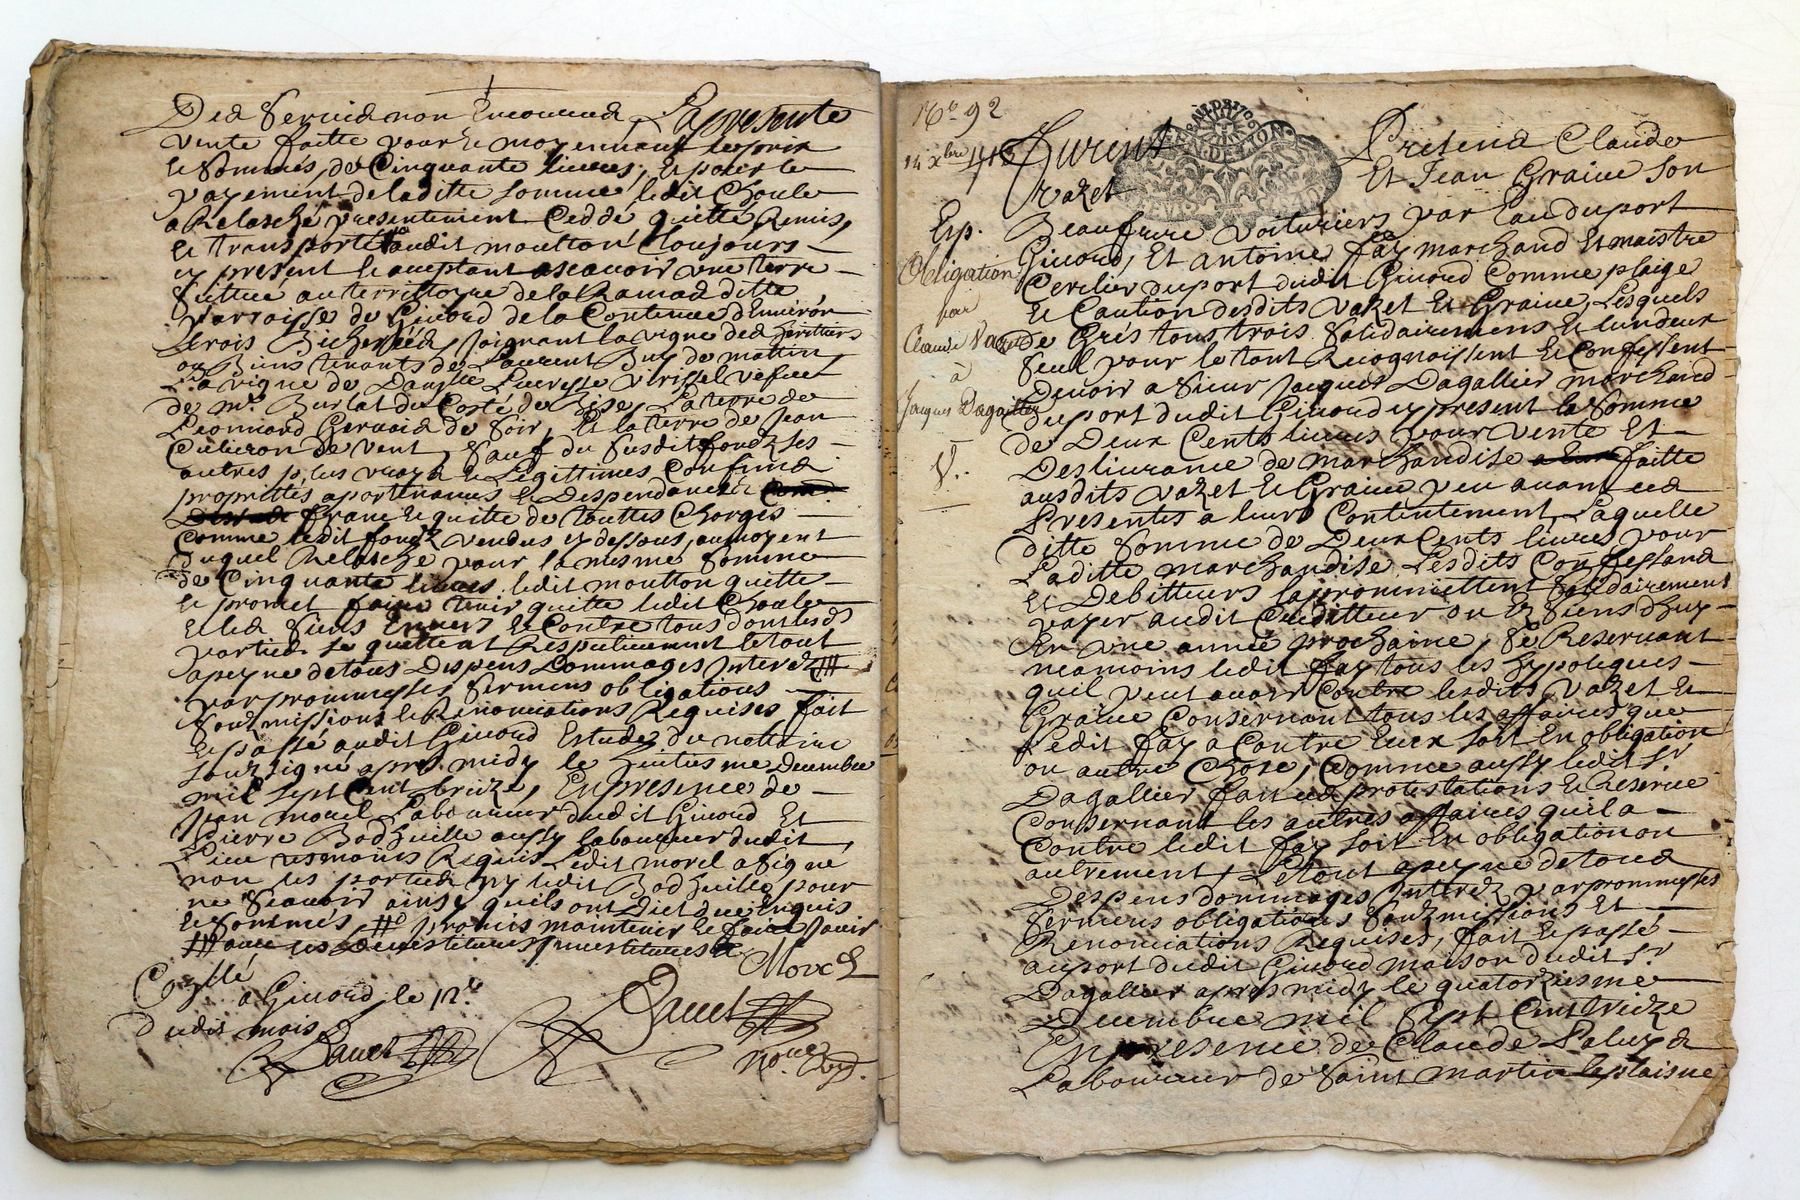 Des servis non encouru La presente
vente faitte pour et moyennant le prix
et sommes de Cinquante livres, Et pour le
payement de laditte somme ledit Choule
a Relasché presentement Ceddé quitté Remis,
et transporté audit moulton toujours
cy present et aceptant ascavoir une terre
situee au territtoyre de la Ramad ditte
parroisse de Givord de la Contenue d'Environ
trois Bicherées, Joignant la vigne des heritiers
ou Biens tenants de Laurent Buy de matin,
la vigne de Dauslle Lucresse vefue
de mr. Burlat du Costé de Bise, La terre de
Leonnard Gervais de soir, Et la terre de Jean
de vent, sauf du susdit fondz ses
autres plus vrays et Legittimes Confins
proprietés apartenances et Despendances
franc et quitte de touttes Charges
Comme ledit fondz vendus cy dessous, au moyent
duquel Relasché pour la mesme somme
de Cinquante livres ledit moulton quitte
et promet faire tenir quitte ledit Choule
et les siens Envers Et Contre tous dont lesds
parties se quittent Respectivement le tout
a peyne de tous Despens Dommages Interetz
par prommesses sermens obligations
soubzmissions et Renonciations Requises fait
et passé audit Givord Estude du nottaire
soubzsigné apres midy le huitiesme Decembre
mil sept Cent treize, En presence de
Jean morel Laboureur dudit Givord Et
Pierre Bodhuille aussy laboureur dudit
Lieu tesmoins Requis ledit morel a signé
non les parties ny ledit Bodhuille pour
ne scavoir ainsy quils ont Dict de ce Enquis
et sommés promis maintenir et faire Jouir
avec les
Morel
Coullé
a Givord, le 12e
dudit mois
Dauet Dauet
no.re Roy.
16 s 92
14 xbre 1713
Exp.
Obligation
par
Claude Vazet
à
Jacques Dagallier
V.
GNAL DE LYON
Furent Presens Claude
Vazet Et Jean Graine son
Beaufrere voituriers par Eau du port
Givord, Et Antoine fay marchand Et maistre
Cerclier du port dudit Givord Comme plaige
et Caution desdits Vazet et Graine, Lesquels
De Grés tous trois solidairement et lun deux
seul pour le tout Recognoissent et Confessent
Devoir a sieur Jacques Dagallier marchand
du port dudit Givord cy present la somme
de Deux Cents livres pour vente Et
Deslivrance de marchandise faitte
ausdits Vazet et Graine peu avant ces
Presentes a leurs Contentement, Laquelle
ditte somme de Deux Cents livres pour
Laditte marchandise Lesdits Confessans
Et Debitteurs la prommettent solidairement
payer audit Creditteur ou es siens d'huy
En une année prochaine, se Reservant
neamoins ledit fay tous les hypoteques
quil peut avoir Contre lesdits Vazet et
Graine Conservant tous les affaires que
ledit fay a Contre Eux soit En obligation
ou autre Chose, Comme aussy ledit sr
Dagallier fait ces protestations et Reserve
Conservant les autres affaires quil a
Contre ledit fay soit En obligation ou
autrement, Le tout a peyne de tous
Despens dommages Interetz par prommesses
sermens obligations soubzmissions Et
Renonciations Requises, fait et passé
au port dudit Givord maison dudit sr
Dagallier apres midy le quatorziesme
Decembre mil sept Cent treize
En presence de Claude Paluy
Laboureur de saint martin la plaisne